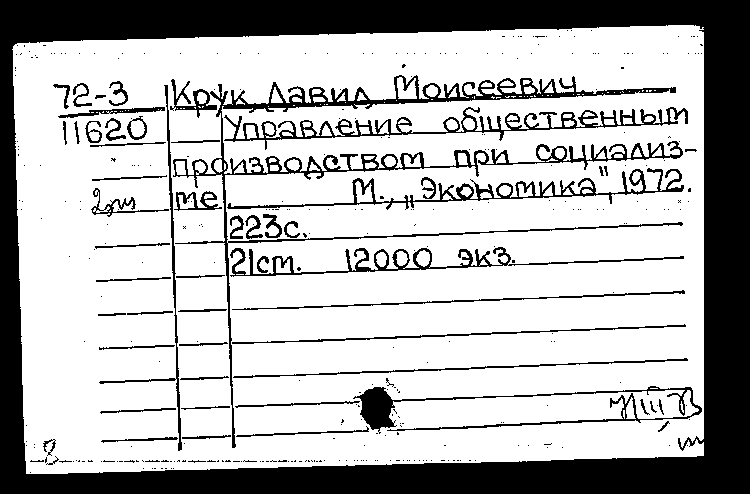 72-3 Крук, Давид Моисеевич.
11620 Управление общественным
производством при социализ-
2экз ме. М., „Экономика", 1972.
223с.
21см. 12000 экз.
8